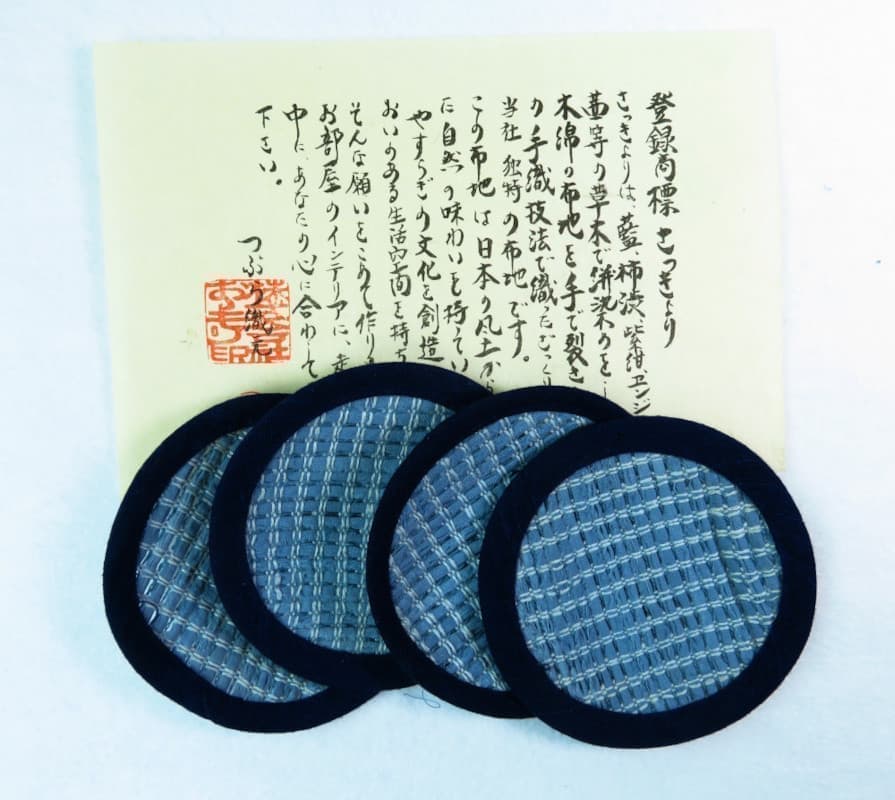 登録商標 さっきょり
さっきょりは、藍、柿渋、紫紺、エンジ
茜等の草木で併染めをし
木綿の布地を手で裂き
の手織技法で織ったむっくり
当社独特の布地です。
この布地は日本の風土から
に自然の味わいを持ってい
やすらぎの文化を創造
おいのある生活空間を持ち
そんな願いをこめて作り
お部屋のインテリアに、
中に、あなたの心に合わして
下さい。
つぶり織元